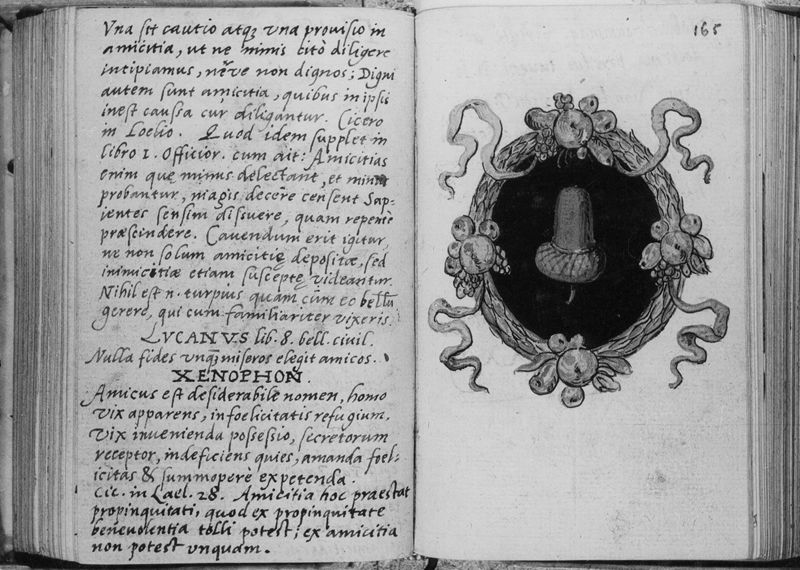 Vna sit cautio atq; vna prouisio in
amicitia, ut ne nimis citò diligere
incipiamus, néve non dignos; Digni
autem sunt amicitia, quibus in ipsis
inest caussa cur diligantur. Cicero
in Loelio. Quod idem supplet in
libro 1. Officior. cum ait: Amicitias
enim quę minus delectant, et minus
probantur, magis decêre censent Sap-
ientes sensim disuere, quam repentè
præscindere. Cavendum erit igitur,
ne non solum amicitię depositæ, sed
inimicitiæ etiam susceptę videantur.
Nihil est n. turpius quàm cùm eo bellũ
gerere, qui cum familiariter vixeris.
LVCANVS lib. 8. bell. civil.
Nulla fides vnq̃ miseros elegit amicos.
XENOPHOÑ.
Amicus est desiderabile nomen, homo
vix apparens, infoelicitatis refugium,
vix invenienda possessio, secretorum
receptor, indeficiens quies, amanda foel-
icitas & summoperè expetenda.
Cic. in Lael. 28. Amicitia hoc praestat
propinquitati, quod ex propinquitate
benevolentia tolli potest; ex amicitia
non potest vnquam.
165